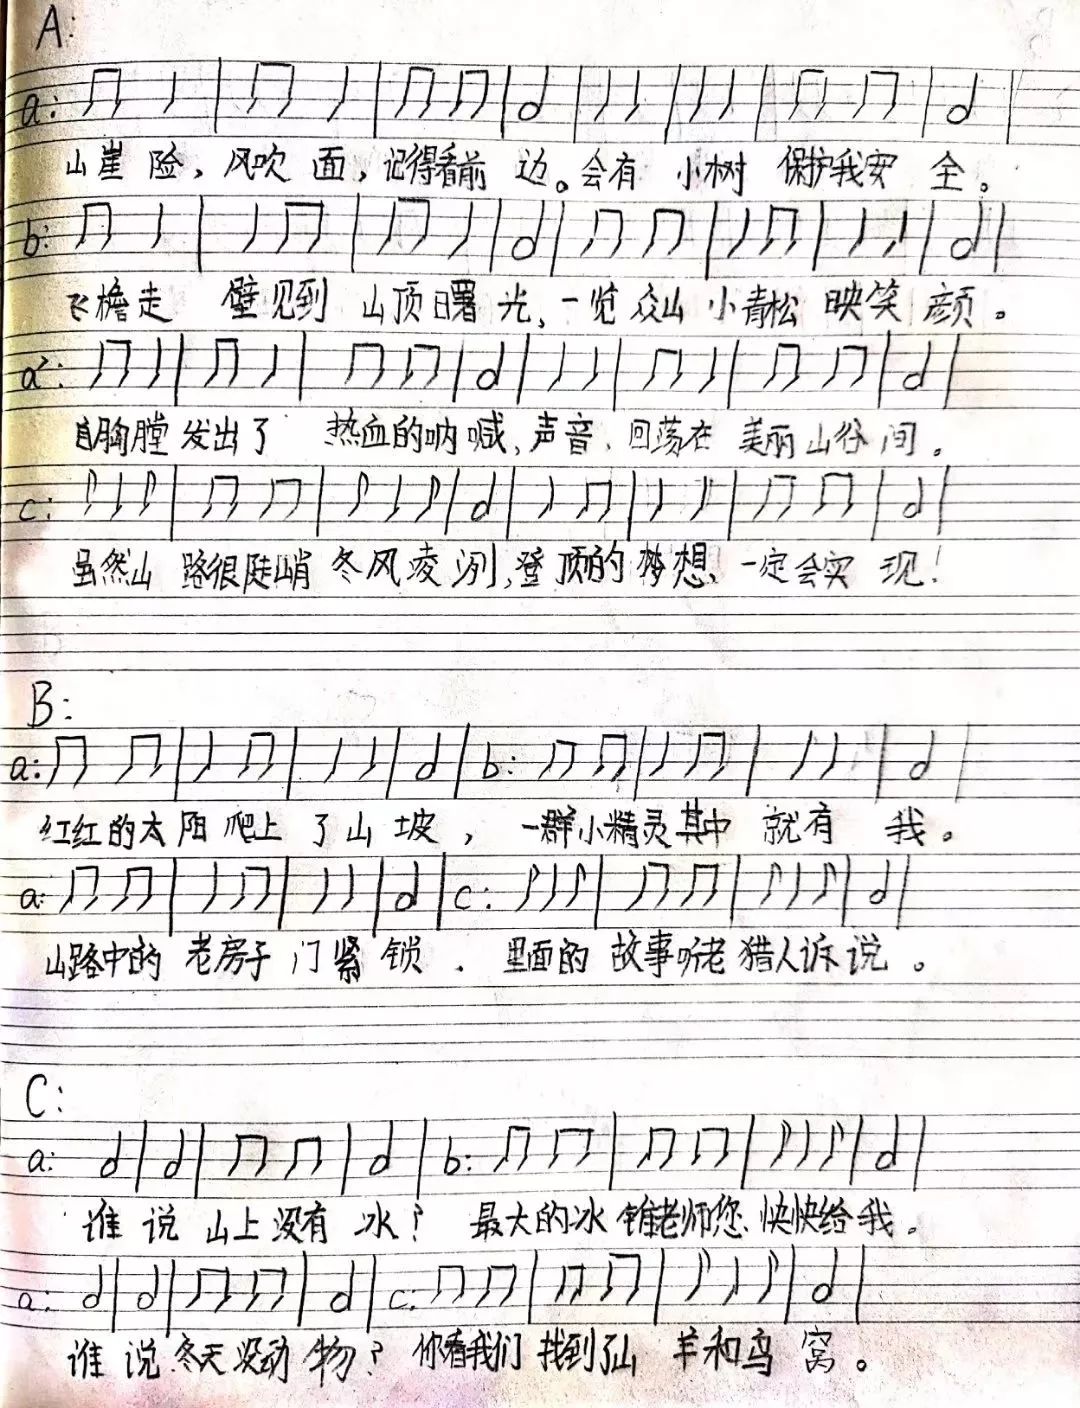 A:
a:
山崖 险，风吹 面，记得看前 边。会有 小树 保护我安 全。
b:
飞檐走 壁见到 山顶曙 光，一览众山 小青松 映笑 颜。
a':
自胸膛 发出了 热血的呐 喊，声音，回荡在 美丽山谷 间。
c:
虽然山 路很陡峭 冬风凌 冽，登顶的 梦想，一定会实 现！
B:
a: b:
红红的太 阳爬上 了山 坡，一群小精灵其中 就有 我。
a: c:
山路中的 老房子 门紧 锁． 里面的 故事听老 猎人诉 说。
C:
a: b:
谁 说 山上没有 冰？ 最大的冰 锥老师您，快快给 我。
a: c:
谁 说 冬天没动 物？ 你看我们 找到了山 羊和鸟 窝。